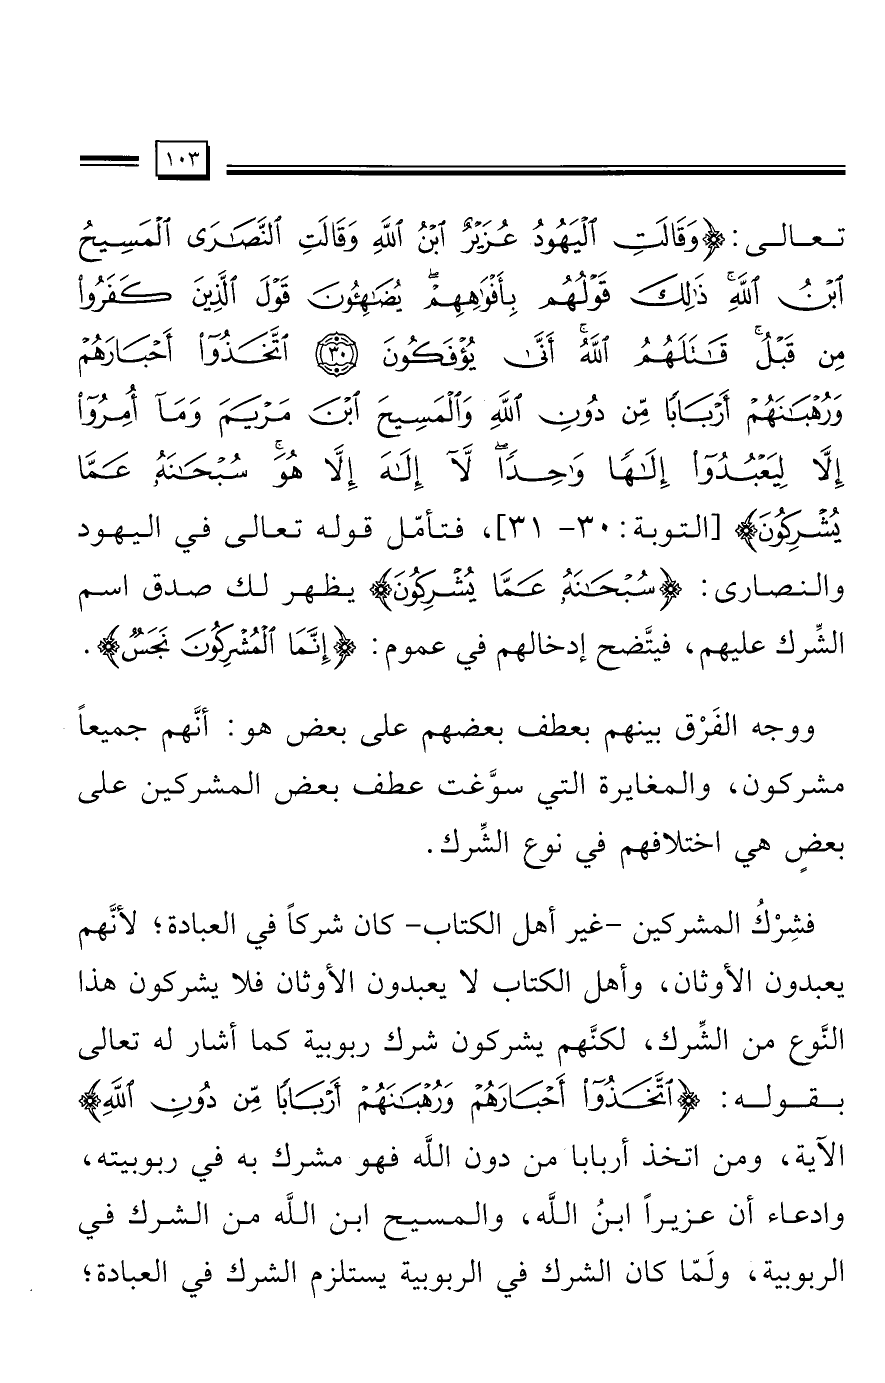 ١٠٣
تعالى: ﴿وَقَالَتِ ٱلْيَهُودُ عُزَيْرٌ ٱبْنُ ٱللَّهِ وَقَالَتِ ٱلنَّصَٰرَى ٱلْمَسِيحُ
ٱبْنُ ٱللَّهِۖ ذَٰلِكَ قَوْلُهُم بِأَفْوَٰهِهِمْۖ يُضَٰهِـُٔونَ قَوْلَ ٱلَّذِينَ كَفَرُوا۟
مِن قَبْلُۚ قَٰتَلَهُمُ ٱللَّهُۚ أَنَّىٰ يُؤْفَكُونَ ٣٠ ٱتَّخَذُوٓا۟ أَحْبَارَهُمْ
وَرُهْبَٰنَهُمْ أَرْبَابًا مِّن دُونِ ٱللَّهِ وَٱلْمَسِيحَ ٱبْنَ مَرْيَمَ وَمَآ أُمِرُوٓا۟
إِلَّا لِيَعْبُدُوٓا۟ إِلَٰهًا وَٰحِدًاۖ لَّآ إِلَٰهَ إِلَّا هُوَۚ سُبْحَٰنَهُۥ عَمَّا
يُشْرِكُونَ﴾ [التوبة: ٣٠- ٣١]، فتأمّل قوله تعالى في اليهود
والنصارى: ﴿سُبْحَٰنَهُۥ عَمَّا يُشْرِكُونَ﴾ يظهر لك صدق اسم
الشِّرك عليهم، فيتَّضح إدخالهم في عموم: ﴿إِنَّمَا ٱلْمُشْرِكُونَ نَجَسٌ﴾.
ووجه الفَرْق بينهم بعطف بعضهم على بعض هو: أنَّهم جميعاً
مشركون، والمغايرة التي سوَّغت عطف بعض المشركين على
بعضٍ هي اختلافهم في نوع الشِّرك.
فشِرْكُ المشركين -غير أهل الكتاب- كان شركاً في العبادة؛ لأنَّهم
يعبدون الأوثان، وأهل الكتاب لا يعبدون الأوثان فلا يشركون هذا
النَّوع من الشِّرك، لكنَّهم يشركون شرك ربوبية كما أشار له تعالى
بقوله: ﴿ٱتَّخَذُوٓا۟ أَحْبَارَهُمْ وَرُهْبَٰنَهُمْ أَرْبَابًا مِّن دُونِ ٱللَّهِ﴾
الآية، ومن اتخذ أربابا من دون اللَّه فهو مشرك به في ربوبيته،
وادعاء أن عزيراً ابنُ اللَّه، والمسيح ابن اللَّه من الشرك في
الربوبية، ولَمّا كان الشرك في الربوبية يستلزم الشرك في العبادة؛